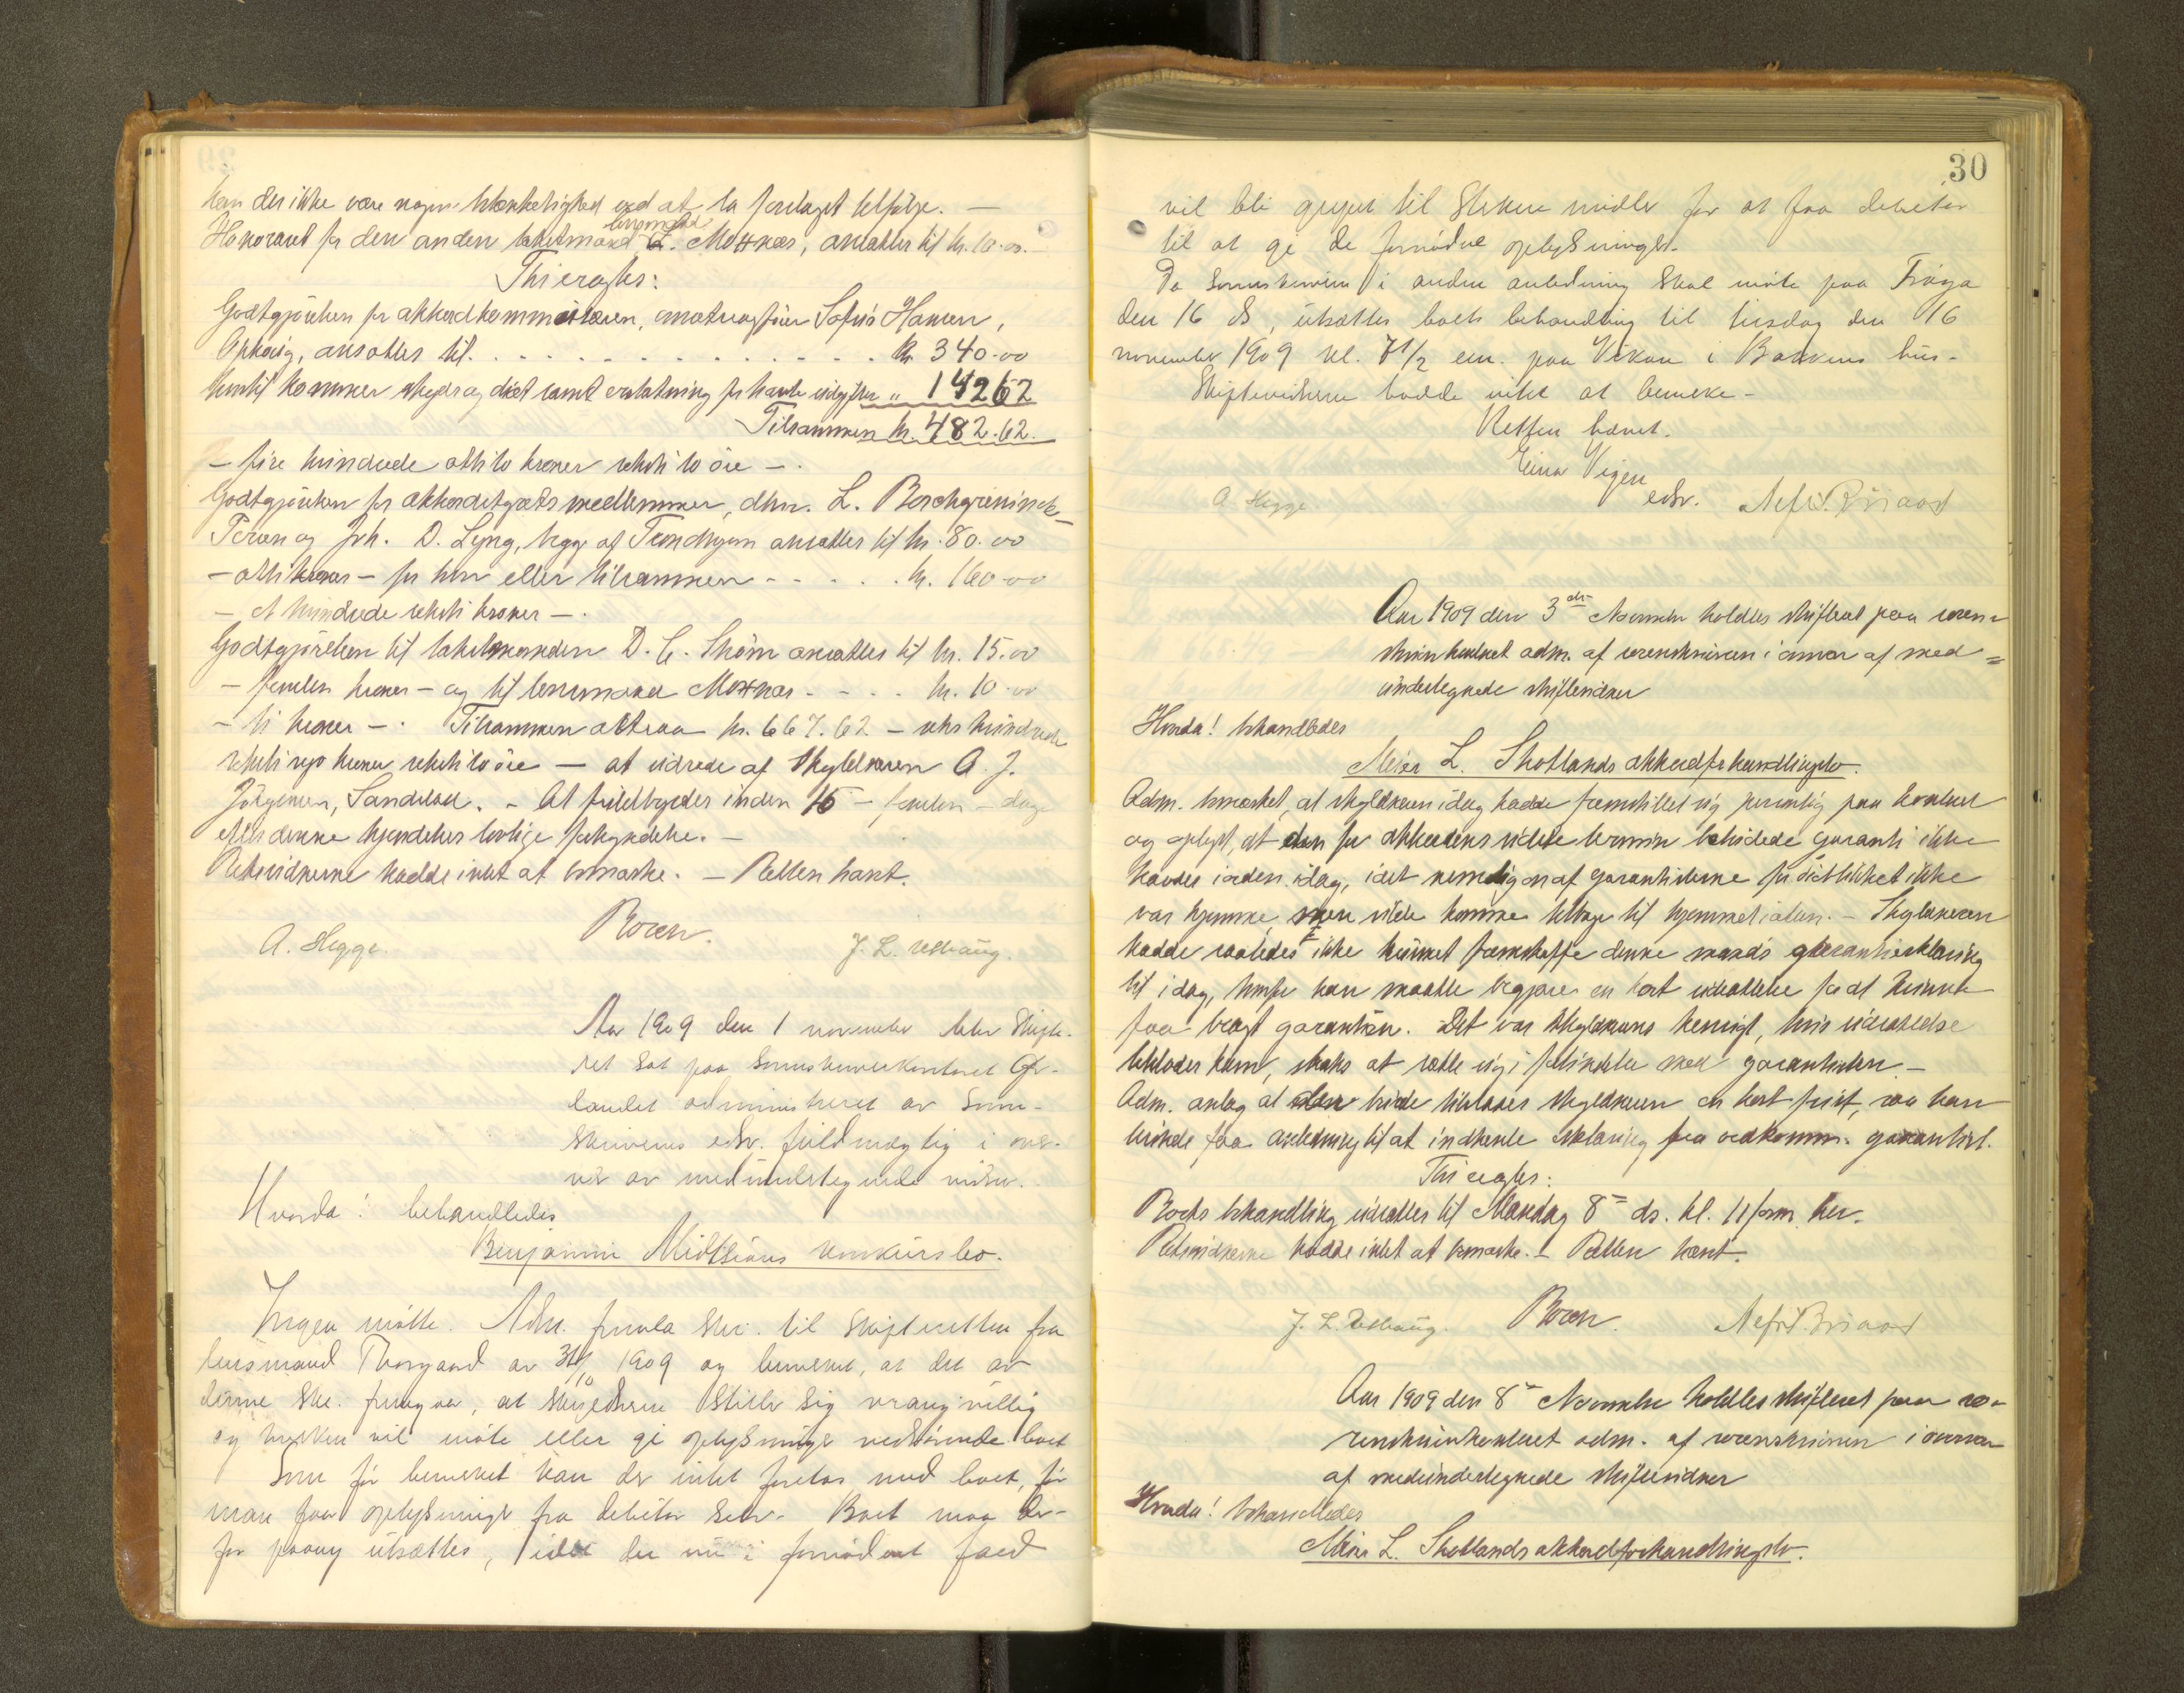 kan der ikke være nogen betænkelighed ved at ta forslaget tilfølge. —
lensmand
Honoraret for den anden takstmand L. Moxnæs, ansættes til kr. 10.00.
Thi eragtes:
Godtgjørelsen for akkordkommissæren, overretssakfører Sofus Hansen,
ansættes til . . . . . . . . . . . . . . . kr. 340.00
hertil kommer skyds og diæt samt erstatning for havte utgifter „ 142 62
Tilsammen kr. 482.62.
— fire hundrede otti to kroner seksti to øre —.
Godtgjørelsen for akkordstyrets medlemmer, dhrr. L. Borchgrevinck-
og Joh. D. Lyng, begge af Trondhjem ansættes til kr. 80.00
— otti kroner — for hver eller tilsammen - - . . . kr. 160.00
— et hundrede seksti kroner —.
Godtgjørelsen til takstmanden D. C. Strøm ansættes til kr. 15.00
— femten kroner — og til lensmand Moxnæs - - - . kr. 10.00
— ti kroner —. Tilsammen altsaa kr. 667.62 — seks hundrede
seksti syv kroner seksti to øre — at utrede af skyldneren A. J.
Jørgensen, Sandstad. — At fuldbyrdes inden 15 — femten — dage
efter denne kjendelses lovlige forkyndelse. —
Retsvidnerne hadde intet at bemærke. — Retten hævet.
A. Hegge.
J. L. Ulshaug.
Aar 1909 den 1 november blev skifte-
ret sat paa sorenskriverkontoret Ør-
landet administreret av soren-
skriverens edsv. fuldmægtig i over-
vær av medundertegnede vidner.
Hvorda! behandledes
Benjamin Midtsians konkursbo.
Ingen møtte. Adm. fremla skr. til skifteretten fra
lensmand Thorgaard av 31/10 1909 og bemerket, at det av
denne skr. fremgaar, at skyldneren stiller sig vrangvillig
og hverken vil møte eller gi oplysninger vedrørende boet
Som før bemerket kan der intet foretas med boet, før
man faar oplysninger fra debitor selv. Boet maa der-
for paany utsættes, idet der nu i fornødent fald
30
vil bli grepet til sterkere midler for at faa debitor
til at gi de fornødne oplysninger.
Da sorenskriveren i anden anledning skal møte paa Frøya
den 16 ds, utsættes boets behandling til tirsdag den 16
november 1909 kl. 7 1/2 em. paa Vikan i Bakkens hus.
Skiftevidnerne hadde intet at bemerke —
Retten hævet.
Einar Vigen
edsv.
A. Hegge
Aar 1909 den 3die November holdtes skifteret paa soren-
skriverkontoret adm. af sorenskriveren i overvær af med-
undertegnede skiftevidner
Hvorda! behandledes
Meier L. Skotlands akkordforhandlingsbo.
Adm. bemærket, at skyldneren idag hadde fremstillet sig personlig paa kontoret
og oplyst, at den for akkordens sidste termin betingede garanti ikke
havdes i orden idag, idet nemlig en af garantisterne for øieblikket ikke
var hjemme, men vilde komme tilbage til hjemmet iaften. — Skyldneren
hadde saaledes ikke kunnet fremskaffe denne mands garantierklæring
til idag, hvorfor han maatte begjære en kort utsættelse for at kunne
faa bragt garantien. Det var skyldnerens hensigt, hvis utsættelse
tilstodes ham, straks at sætte sig i forbindelse med garantisten. —
Adm. antog at der burde tilstaaes skyldneren en kort frist, saa han
kunde faa anledning til at indhente erklæring fra vedkomm. garantist.
Thi eragtes:
Boets behandling utsættes til Mandag 8de ds. kl. 11 form. her.
Retsvidnerne hadde intet at bemærke. — Retten hævet.
J. L. Ulshaug.
Aar 1909 den 8de November holdtes skifteret paa so-
renskriverkontoret adm. af sorenskriveren i overvær
af medundertegnede skiftevidner
Hvorda! behandledes
Meier L. Skotlands akkordforhandlingsbo.